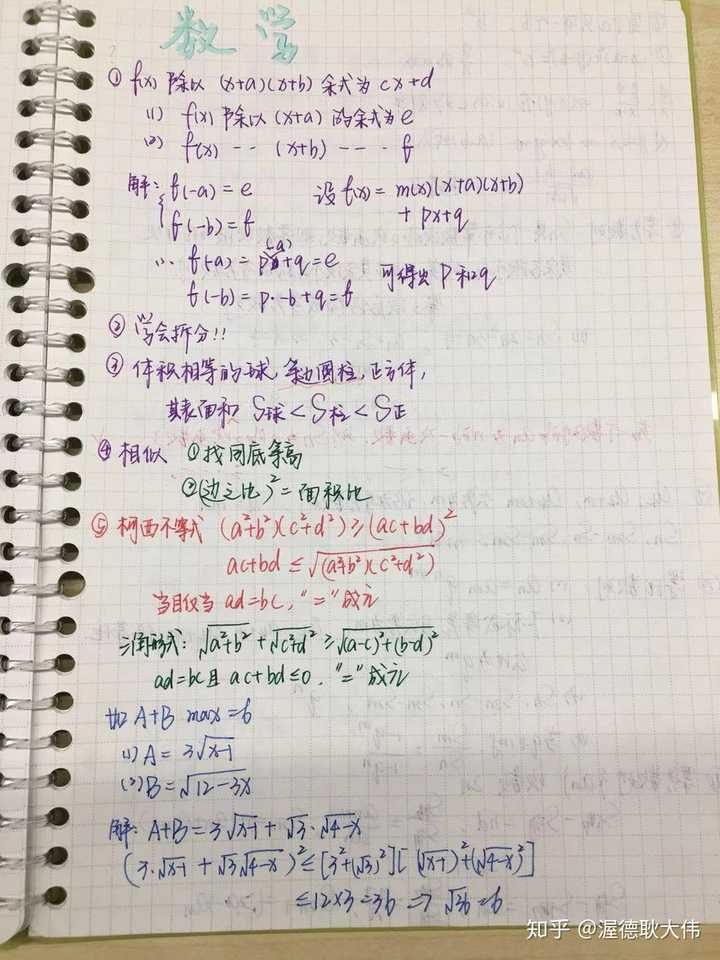 数学
① f(x) 除以 (x+a)(x+b) 余式为 cx+d
(1) f(x) 除以 (x+a) 的余式为 e
(2) f(x) -- (x+b) --- f
解: { f(-a) = e 设 f(x) = m(x)(x+a)(x+b)
f(-b) = f + px+q
∴ f(-a) = p(-a)+q = e 可得出 p 和 q
f(-b) = p·-b+q = f
② 学会拆分!!
③ 体积相等的球, 等边圆柱, 正方体,
其表面积 S球 < S柱 < S正
④ 相似 ① 找同底等高
② (边之比)² = 面积比
⑤ 柯西不等式 (a²+b²)(c²+d²) ≥ (ac+bd)²
ac+bd ≤ √(a²+b²)(c²+d²)
当且仅当 ad=bc, "=" 成立
三角形式: √a²+b² + √c²+d² ≥ √(a-c)²+(b-d)²
ad=bc 且 ac+bd≤0, "=" 成立
如 A+B max=6
(1) A = 3√x-1
(2) B = √12-3x
解: A+B = 3√x-1 + √3·√4-x
(3·√x-1 + √3√4-x)² ≤ [3²+(√3)²][(√x-1)²+(√4-x)²]
≤ 12×3 = 36 ⇒ √36 = 6
知乎 @渥德耿大伟